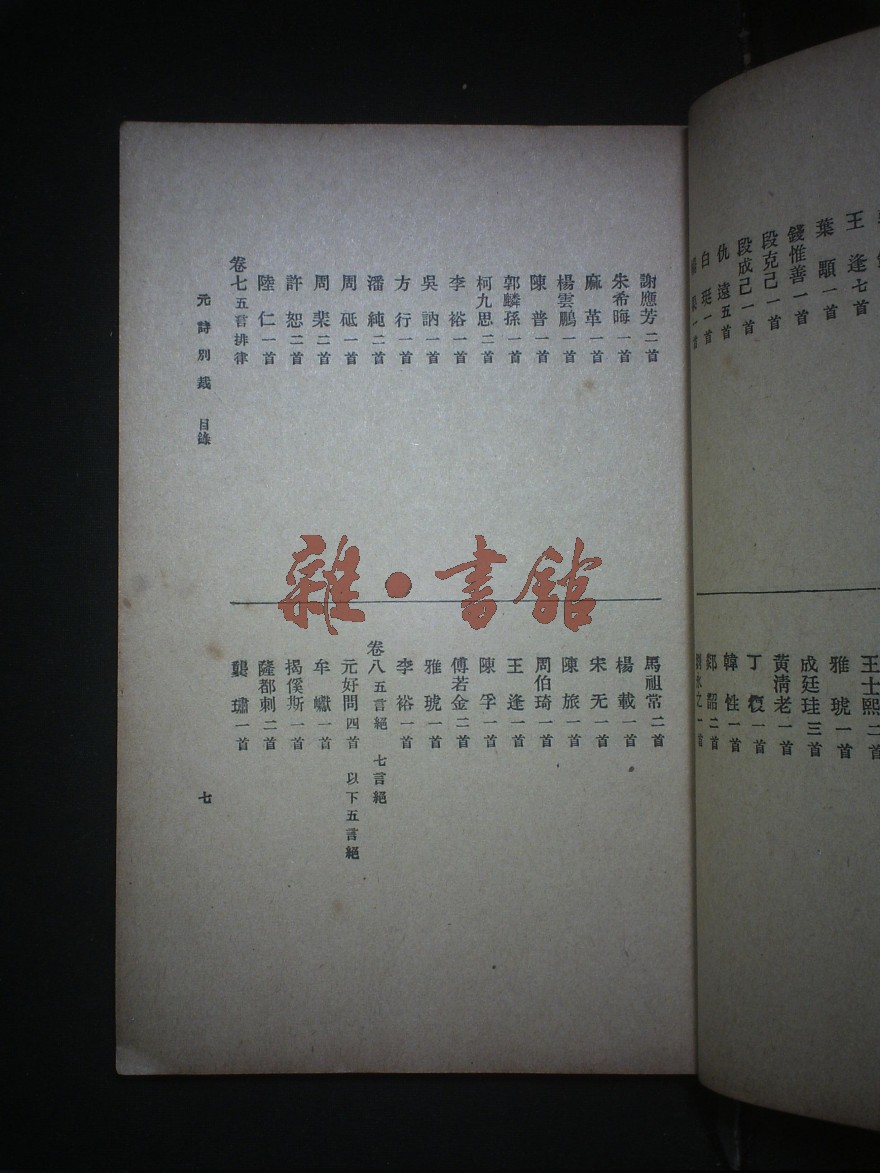 王逢七首
葉顒一首
錢惟善一首
段克己一首
段成己一首
仇遠五首
白珽一首
王士熙二首
雅琥一首
成廷珪三首
黃清老一首
丁復一首
韓性一首
郯韶二首
謝應芳二首
朱希晦一首
麻革一首
楊雲鵬一首
陳普一首
郭麟孫一首
柯九思二首
李裕一首
吳訥一首
方行一首
潘純二首
周砥一首
周棐二首
許恕二首
陸仁一首
卷七五言排律
馬祖常二首
楊載一首
宋无一首
陳旅一首
周伯琦一首
王逢一首
陳孚一首
傅若金二首
雅琥一首
李裕一首
卷八五言絕 七言絕
元好問四首 以下五言絕
牟巘一首
揭傒斯一首
薩都刺二首
龔璛一首
元詩別裁 目錄
七
雜·書館